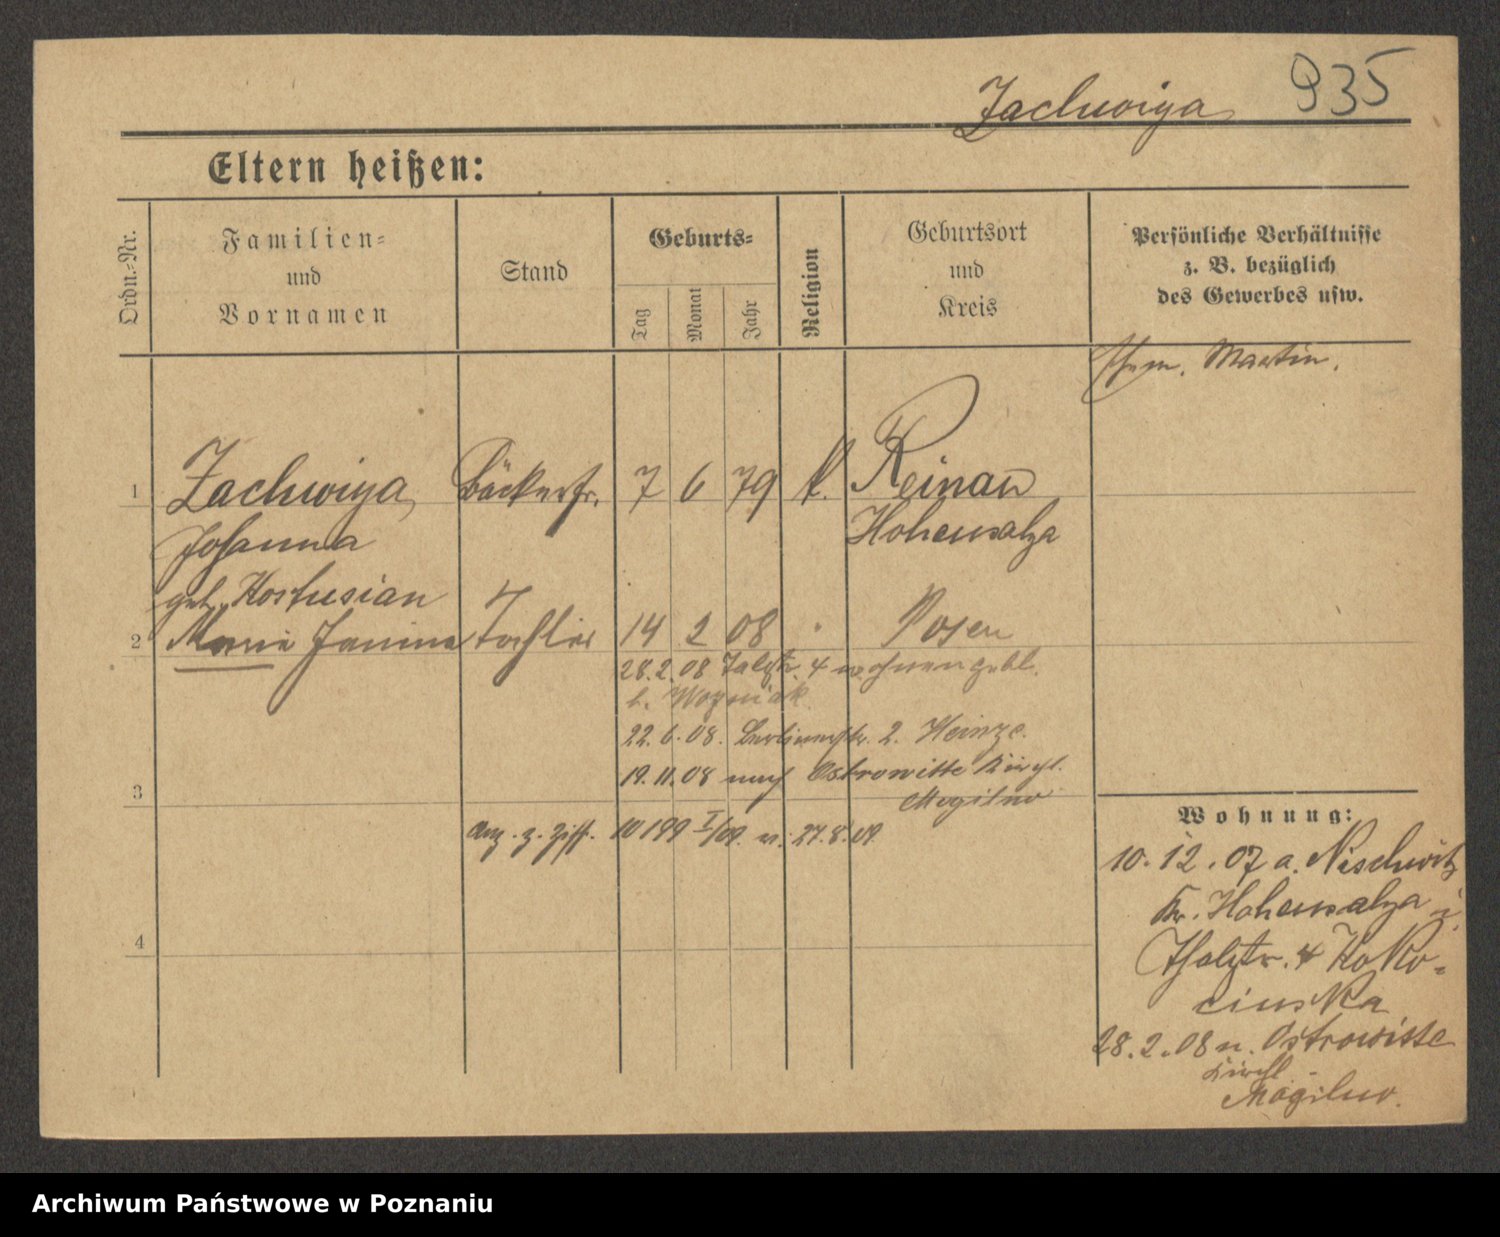 Zachwiya 935
Eltern heißen:
Ordn.-Nr.
Familien-
und
Vornamen
Stand
Geburts-
Tag
Monat
Jahr
Religion
Geburtsort
und
Kreis
Persönliche Verhältnisse
z. B. bezüglich
des Gewerbes usw.
Ehem. Martin.
1 Zachwiya, Bäckerfr. 7 6 79 k. Reinau
Johanna Hohensalza
geb. Kostusian
2 Marie Janina Tochter 14 2 08 " Posen
28.2.08 Talstr. 4 wohnen gebl.
b. Wozniak
22.6.08. Berlinerstr. 2. Heinze.
19.11.08 nach Ostrowitte Kirchl.
Mogilno
3
Anz. z. Ziff. 10199 I/09. v. 27.8.09.
4
Wohnung:
10.12.07 a. Nischwitz
Kr. Hohensalza i.
Thalstr. 4 Koko-
cinska
28.2.08 n. Ostrowitte
Kirchl.
Mogilno.
Archiwum Państwowe w Poznaniu